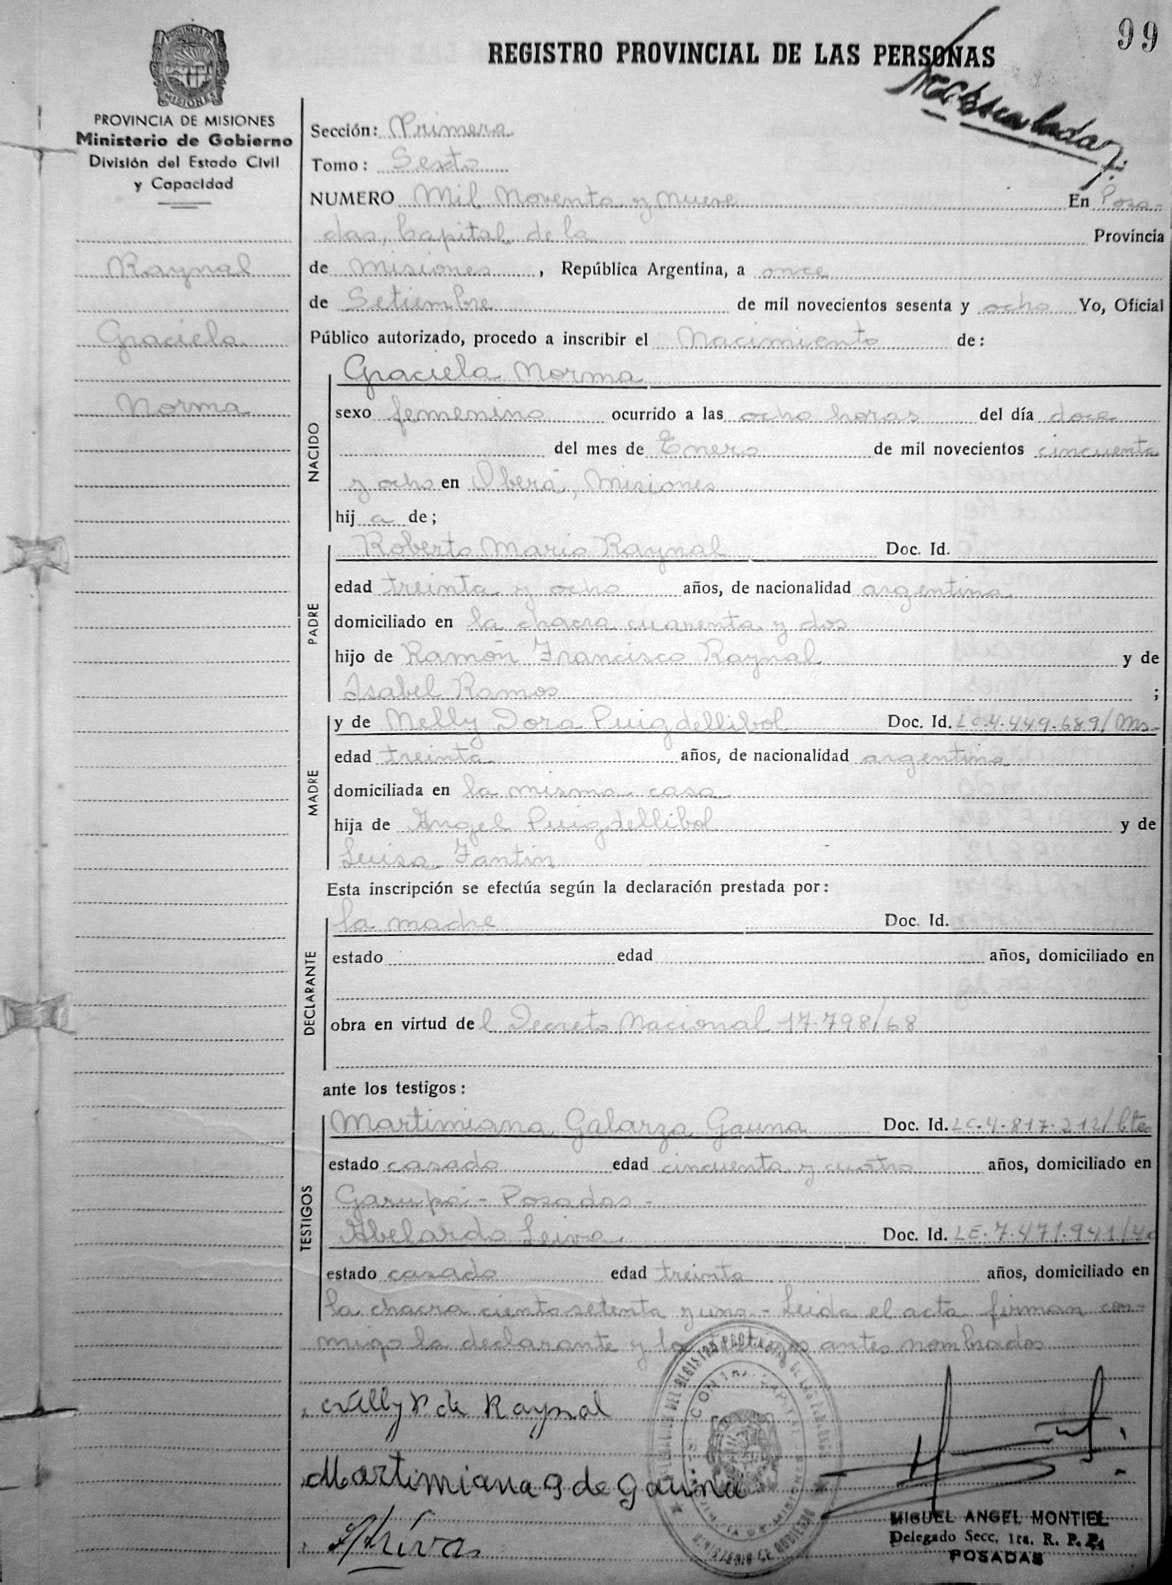 99
REGISTRO PROVINCIAL DE LAS PERSONAS
PROVINCIA DE MISIONES
Ministerio de Gobierno
División del Estado Civil
y Capacidad
Raynal
Graciela
Norma
Sección: Primera
Tomo: Sexto
NUMERO Mil Noventa y Nueve En Posa-
das, Capital de la Provincia
de Misiones, República Argentina, a once
de Setiembre de mil novecientos sesenta y ocho Yo, Oficial
Público autorizado, procedo a inscribir el Nacimiento de:
NACIDO
Graciela Norma
sexo femenino ocurrido a las ocho horas del día doce
del mes de Enero de mil novecientos cincuenta
y ocho en Oberá, Misiones
hij a de;
PADRE
Roberto Mario Raynal Doc. Id.
edad treinta y ocho años, de nacionalidad argentina
domiciliado en la chacra cuarenta y dos
hijo de Ramón Francisco Raynal y de
Isabel Ramos ;
MADRE
y de Nelly Dora Puigdellibol Doc. Id. LC.4.449.689/Ms-
edad treinta años, de nacionalidad argentina
domiciliada en la misma casa
hija de Angel Puigdellibol y de
Luisa Fantin
Esta inscripción se efectúa según la declaración prestada por:
DECLARANTE
la madre Doc. Id.
estado edad años, domiciliado en
obra en virtud de l Decreto Nacional 17.798/68
ante los testigos:
TESTIGOS
Martimiana Galarza Gauna Doc. Id. LC.4.817.212/Ctes
estado casada edad cincuenta y cuatro años, domiciliado en
Garupá - Posadas -
Abelardo Leiva Doc. Id. LE.7.471.941/
estado casado edad treinta años, domiciliado en
la chacra ciento setenta y uno - Leida el acta firman con-
migo la declarante y los testigos antes nombrados
Nelly P. de Raynal
Martimiana G de Gauna
MIGUEL ANGEL MONTIEL
Delegado Secc. 1ra. R. P. P.
POSADAS